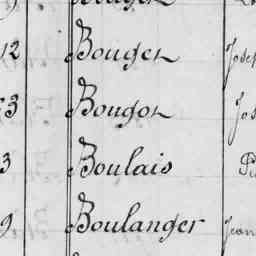 12 Bouger Josep
3 Bougon Jos
3 Boulais
9 Boulanger Jean